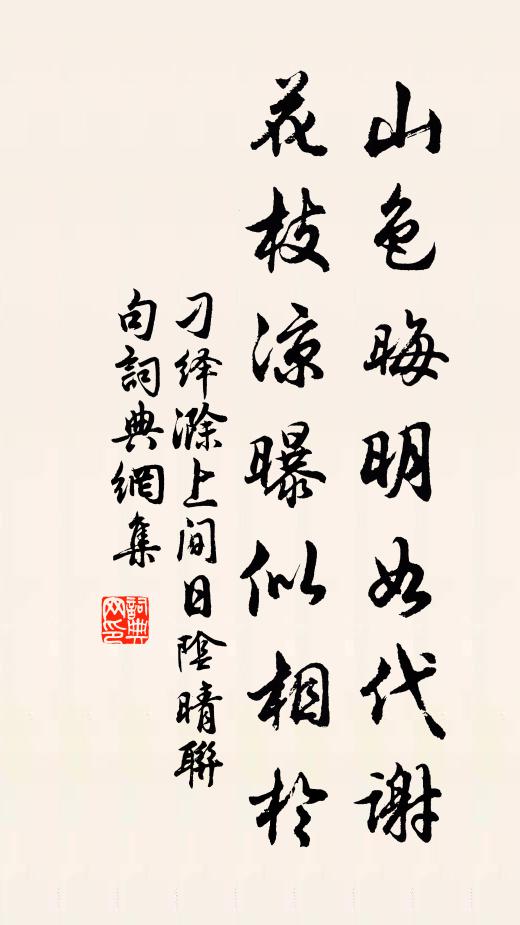 山色晦明如代谢
花枝凉曝似相於
刁绎滁上间日陰晴聯
句詞典網集
詞典
网印